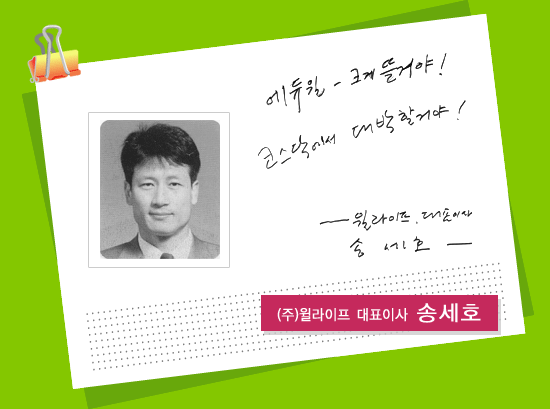 에듀윌 - 크게 뜰거야!
코스닥에서 대박할거야!
— 윌라이프. 대표이사
송세호 —
(주)윌라이프 대표이사 송세호